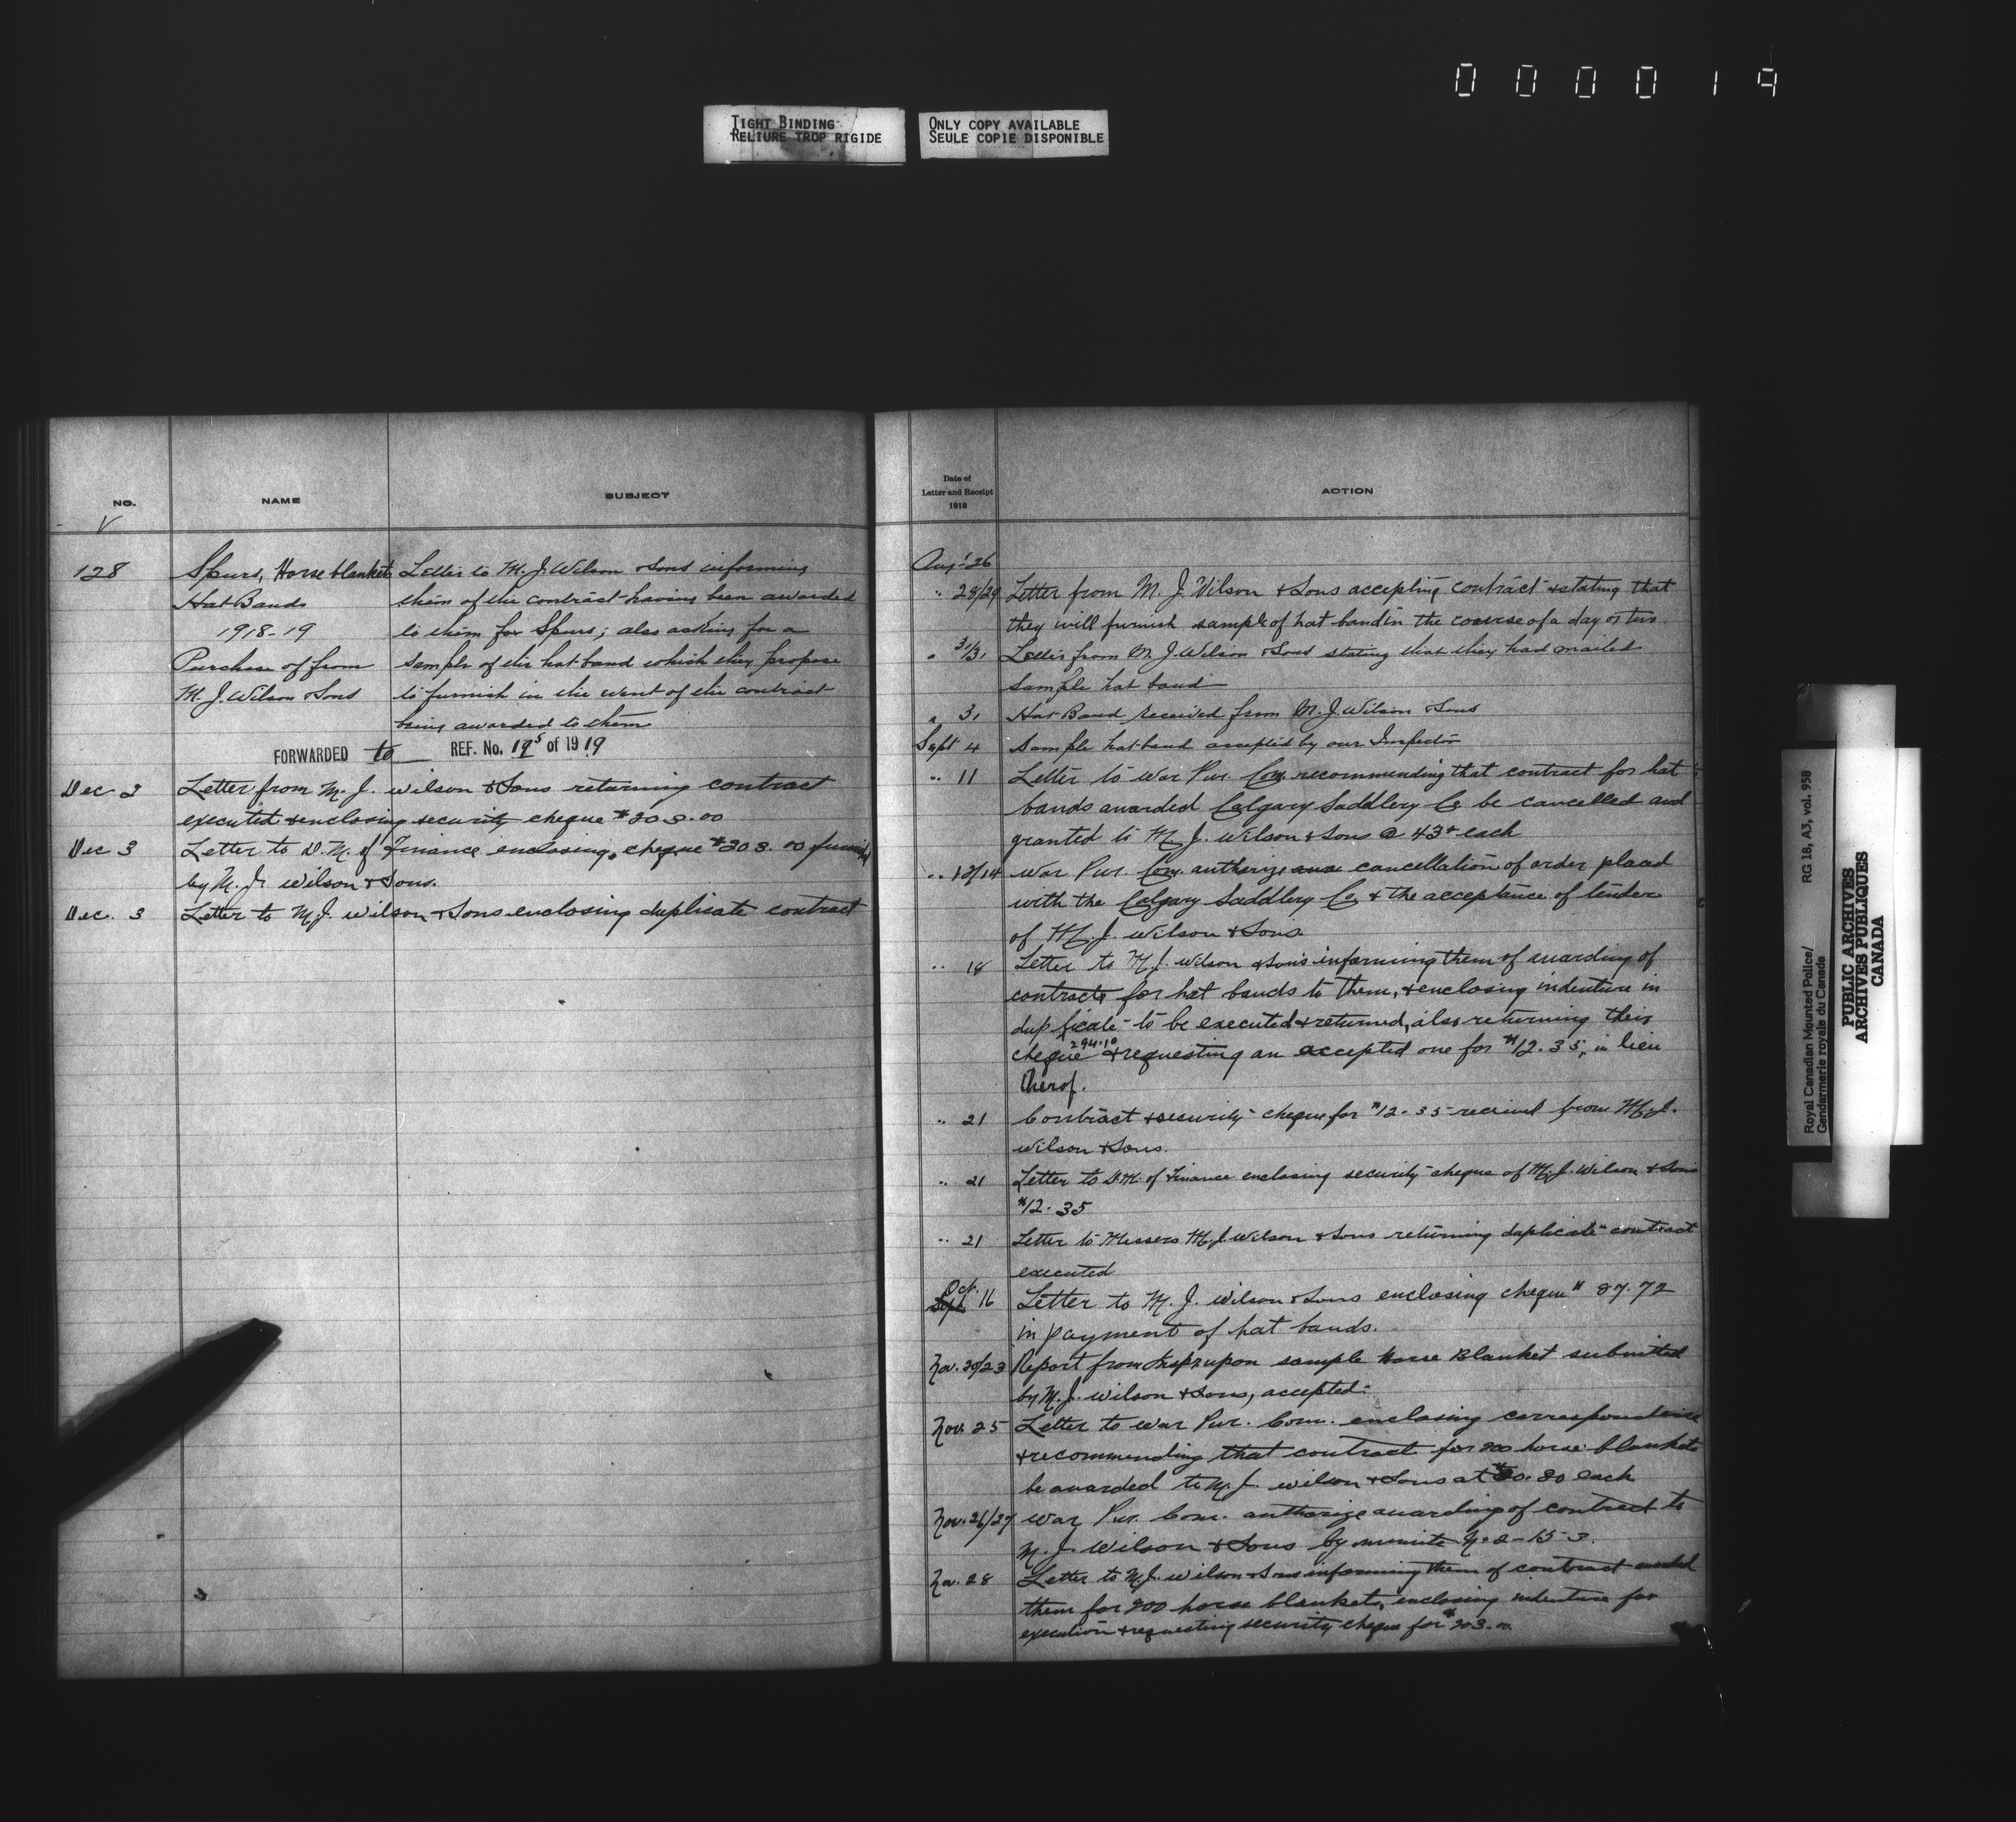 000019
TIGHT BINDING
RELIURE TROP RIGIDE
ONLY COPY AVAILABLE
SEULE COPIE DISPONIBLE
NO.
NAME
SUBJECT
V
128
Spurs, Horse blankets
Hat Bands
1918-19
Purchase of from
M. J. Wilson & Sons
Letter to M. J. Wilson & Sons informing
them of the contract having been awarded
to them for Spurs; also asking for a
sample of the hat band which they propose
to furnish in the event of the contract
being awarded to them
FORWARDED to REF. No. 19⁵ of 1919
Dec 2 Letter from M. J. Wilson & Sons returning contract
executed & enclosing security cheque
Dec 3 Letter to D. M. of Finance enclosing cheque
by M. J. Wilson & Sons.
Dec. 3 Letter to M. J. Wilson & Sons enclosing duplicate contract
Date of
Letter and Receipt
1918
ACTION
Aug't 26
" 28/29 Letter from M. J. Wilson & Sons accepting contract & stating that
they will furnish sample of hat band in the course of a day or two
" 31/31 Letter from M. J. Wilson & Sons stating that they had mailed
sample hat band
" 31 Hat Band received from M. J. Wilson & Sons
Sept 4 Sample hat band accepted by our Inspector
" 11 Letter to War Pur. Com. recommending that contract for hat
bands awarded Calgary Saddlery Co be cancelled and
granted to M. J. Wilson & Sons @ 43¢ each
" 13/14 War Pur. Com. authorize cancellation of order placed
with the Calgary Saddlery Co. & the acceptance of tender
of M. J. Wilson & Sons.
" 18 Letter to M. J. Wilson & Sons informing them of awarding of
contracts for hat bands to them, & enclosing indenture in
duplicate to be executed & returned, also returning their
cheque 294.10 & requesting an accepted one for $12.35, in lieu
therof.
" 21 Contract & security cheque for $12.35 received from M. J.
Wilson & Sons.
" 21 Letter to D.M. of Finance enclosing security cheque of M. J. Wilson & Sons
$12.35
" 21 Letter to Messers M. J. Wilson & Sons returning duplicate contract
executed
Oct. 16 Letter to M. J. Wilson & Sons enclosing cheque $ 87.72
in payment of hat bands.
Nov. 20/23 Report from Inspr upon sample Horse Blanket submitted
by M. J. Wilson & Sons, accepted.
Nov. 25 Letter to War Pur. Com. enclosing correspondence
& recommending that contract for 200 horse blankets
be awarded to M. J. Wilson & Sons at each
Nov. 26/27 War Pur. Com. authorize awarding of contract to
M. J. Wilson & Sons by minute
Nov. 28 Letter to M. J. Wilson & Sons informing them of contract
them for 200 horse blankets, enclosing indenture for
execution & requesting security cheque for
Royal Canadian Mounted Police/
Gendarmerie royale du Canada
RG 18, A3, vol. 958
PUBLIC ARCHIVES
ARCHIVES PUBLIQUES
CANADA